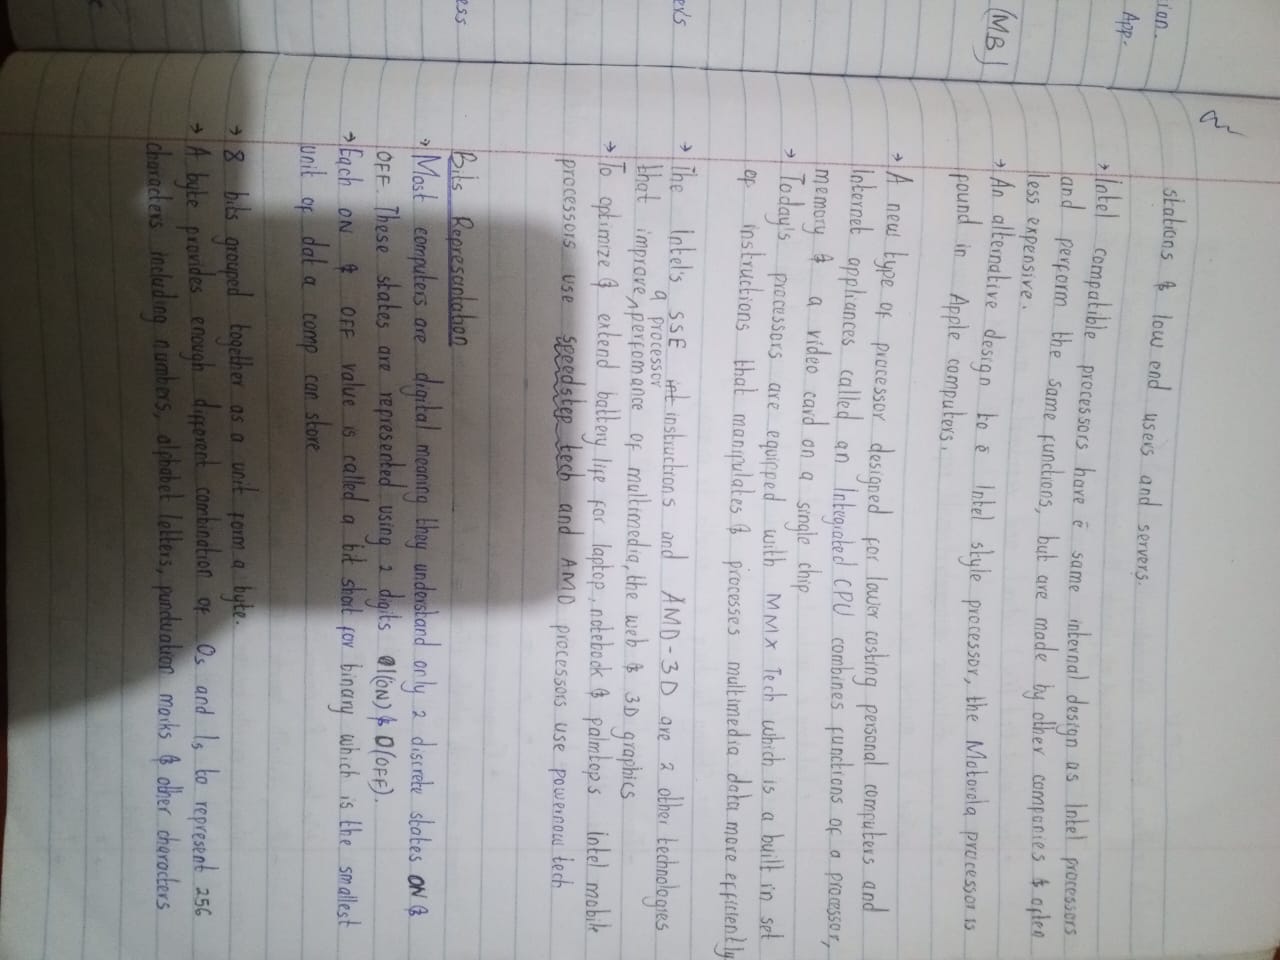 stations & low end users and servers.
→ Intel compatible processors have ē same internal design as Intel processors
and perform the same functions, but are made by other companies & often
less expensive.
→ An alternative design to ē Intel style processor, the Motorola processor is
found in Apple computers.
→ A new type of processor designed for lower costing personal computers and
Internet appliances called an Integrated CPU combines functions of a processor,
memory & a video card on a single chip
→ Today's processors are equipped with MMX Tech which is a built in set
of instructions that manipulates & processes multimedia data more efficiently
→ The Intel's SSE int instructions and AMD-3D are 2 other technologies
a processor
that improve ^ perfomance of multimedia, the web & 3D graphics
→ To optimize & extend battery life for laptop, notebook & palmtops Intel mobile
processors use speedstep tech and AMD processors use powernow tech
Bits Represantation
→ Most computers are digital meaning they understand only 2 discrete states ON &
OFF. These states are represented using 2 digits 1(ON) & 0(OFF).
→ Each ON & OFF value is called a bit short for binary which is the smallest
unit of dat a comp can store
→ 8 bits grouped together as a unit form a byte.
→ A byte provides enough different combination of 0s and 1s to represent 256
characters including numbers, alphabet letters, punctuation marks & other characters
ion.
App.
(MB)
ers
ess